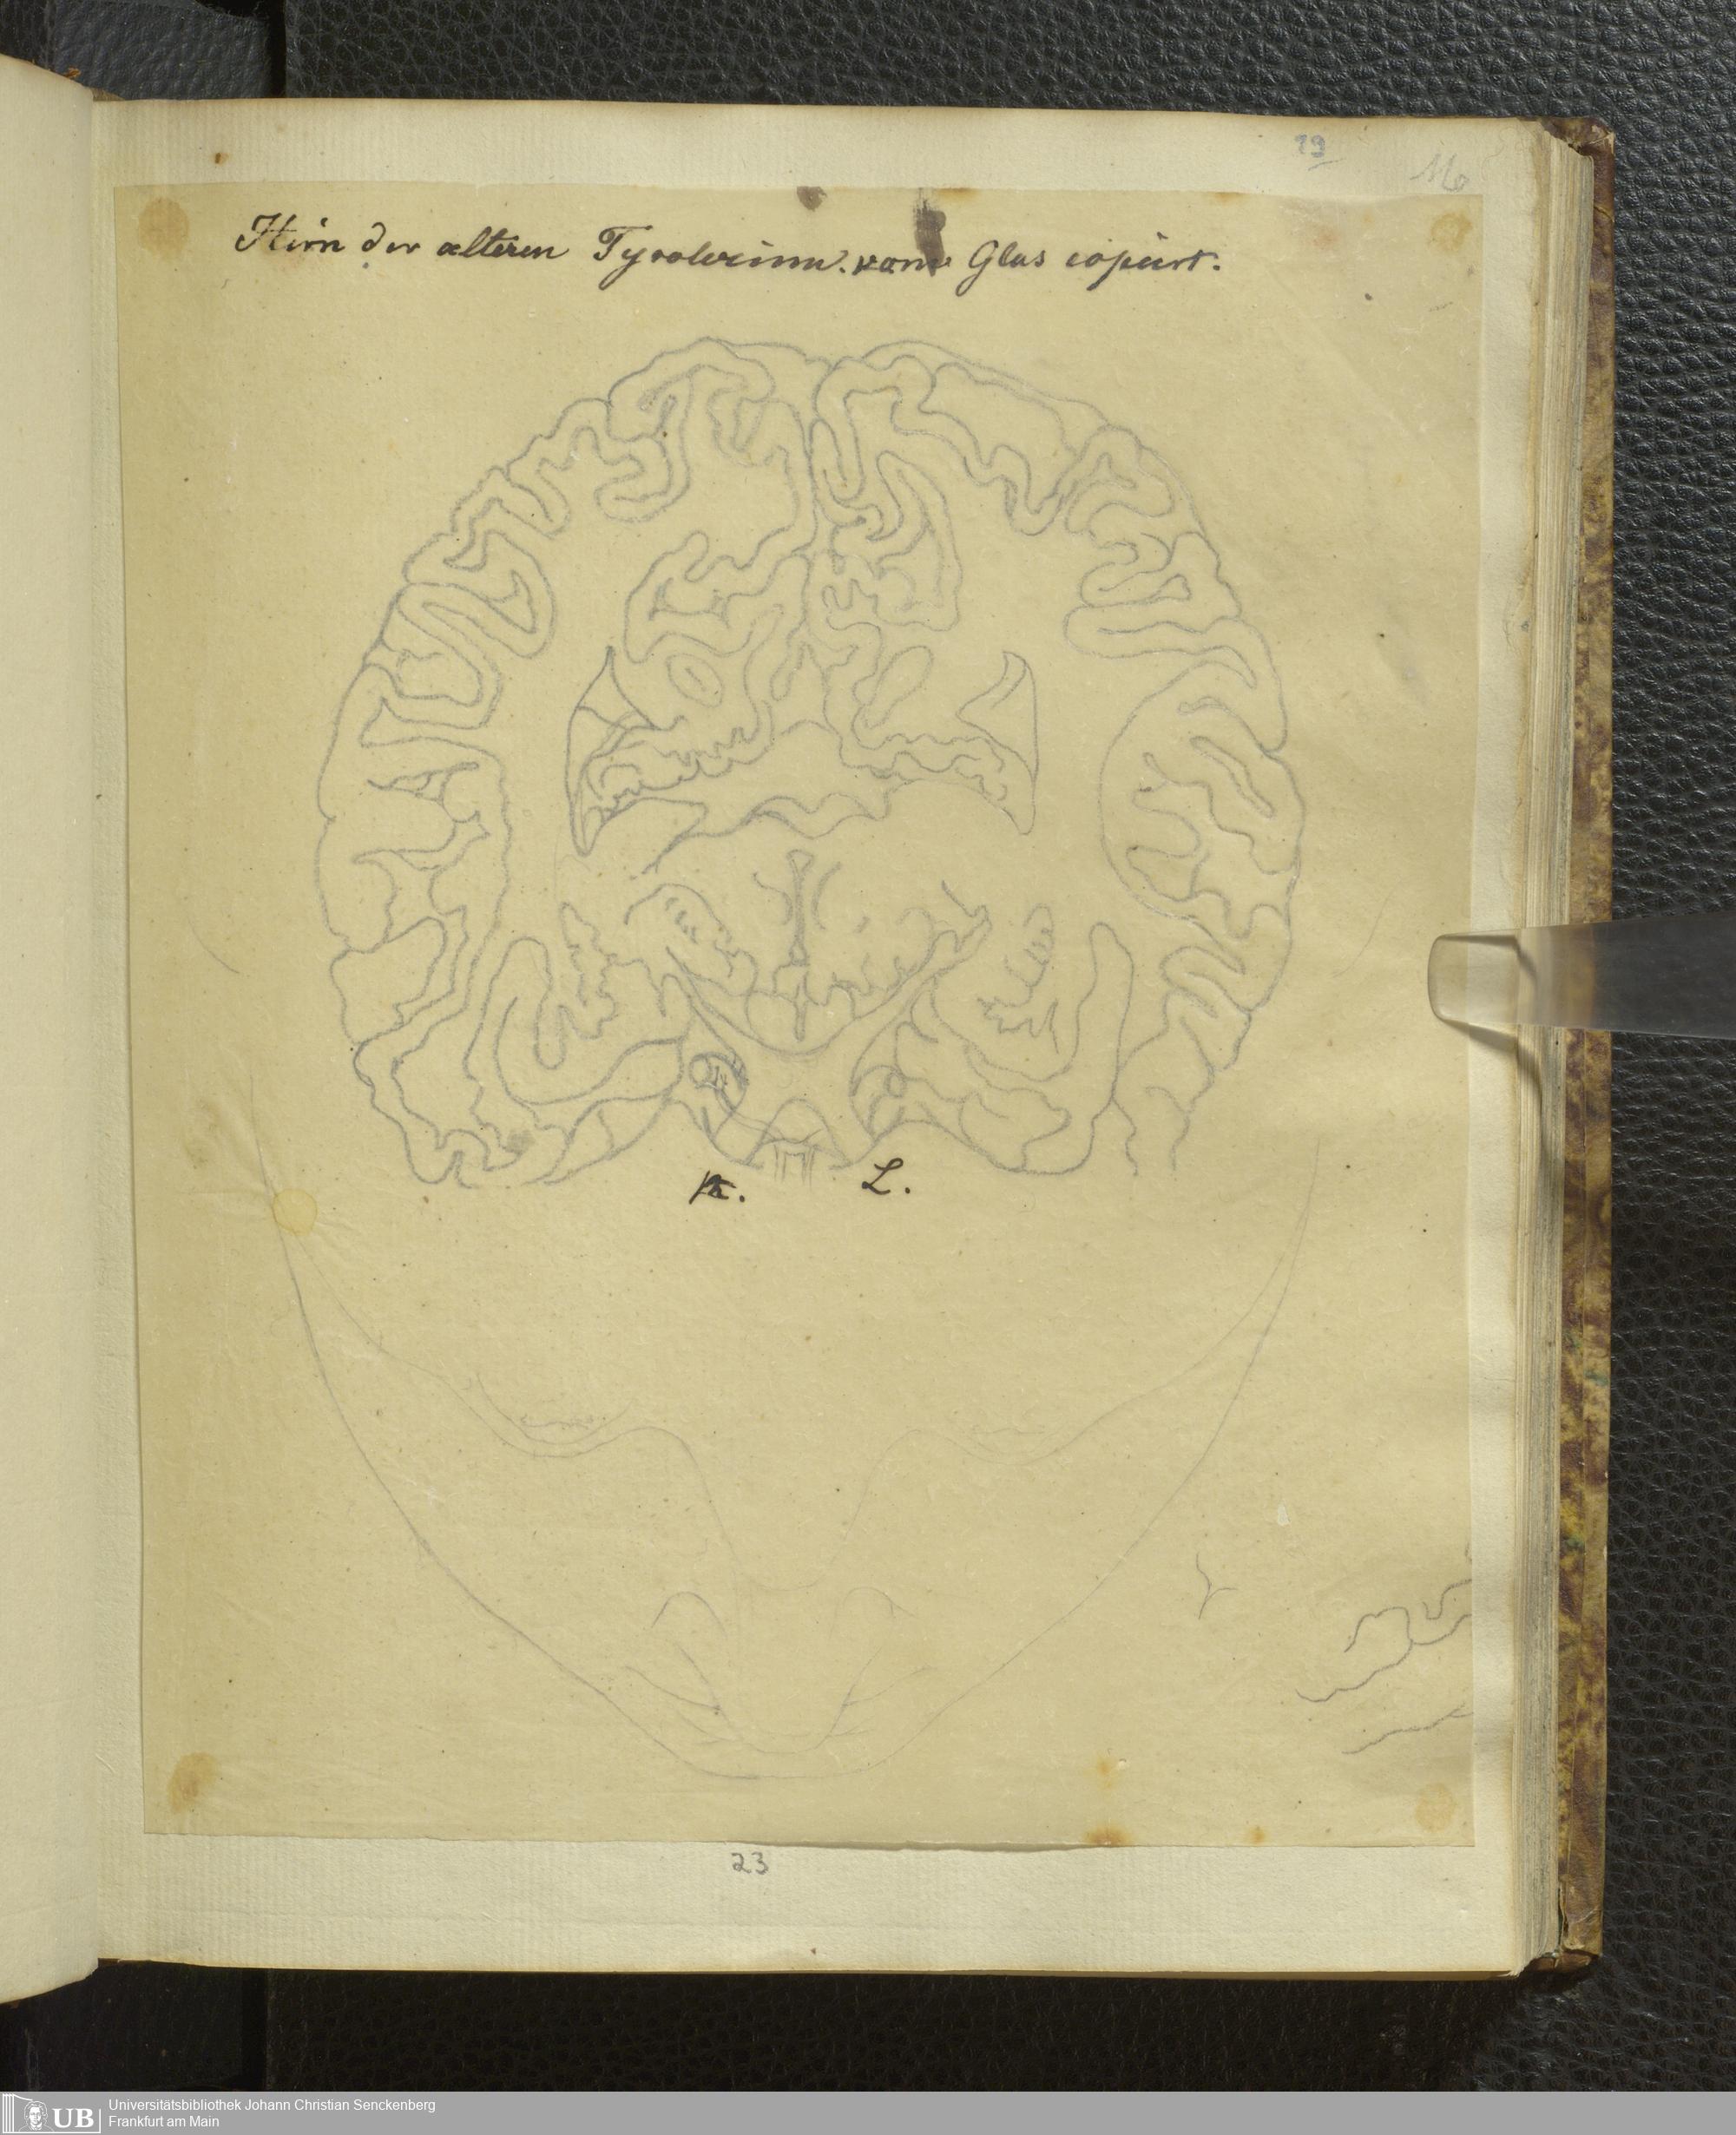 19
116
Hirn der ælteren Tyrolerinn. vom Glas copirt.
R. L.
23
UB
Universitätsbibliothek Johann Christian Senckenberg
Frankfurt am Main